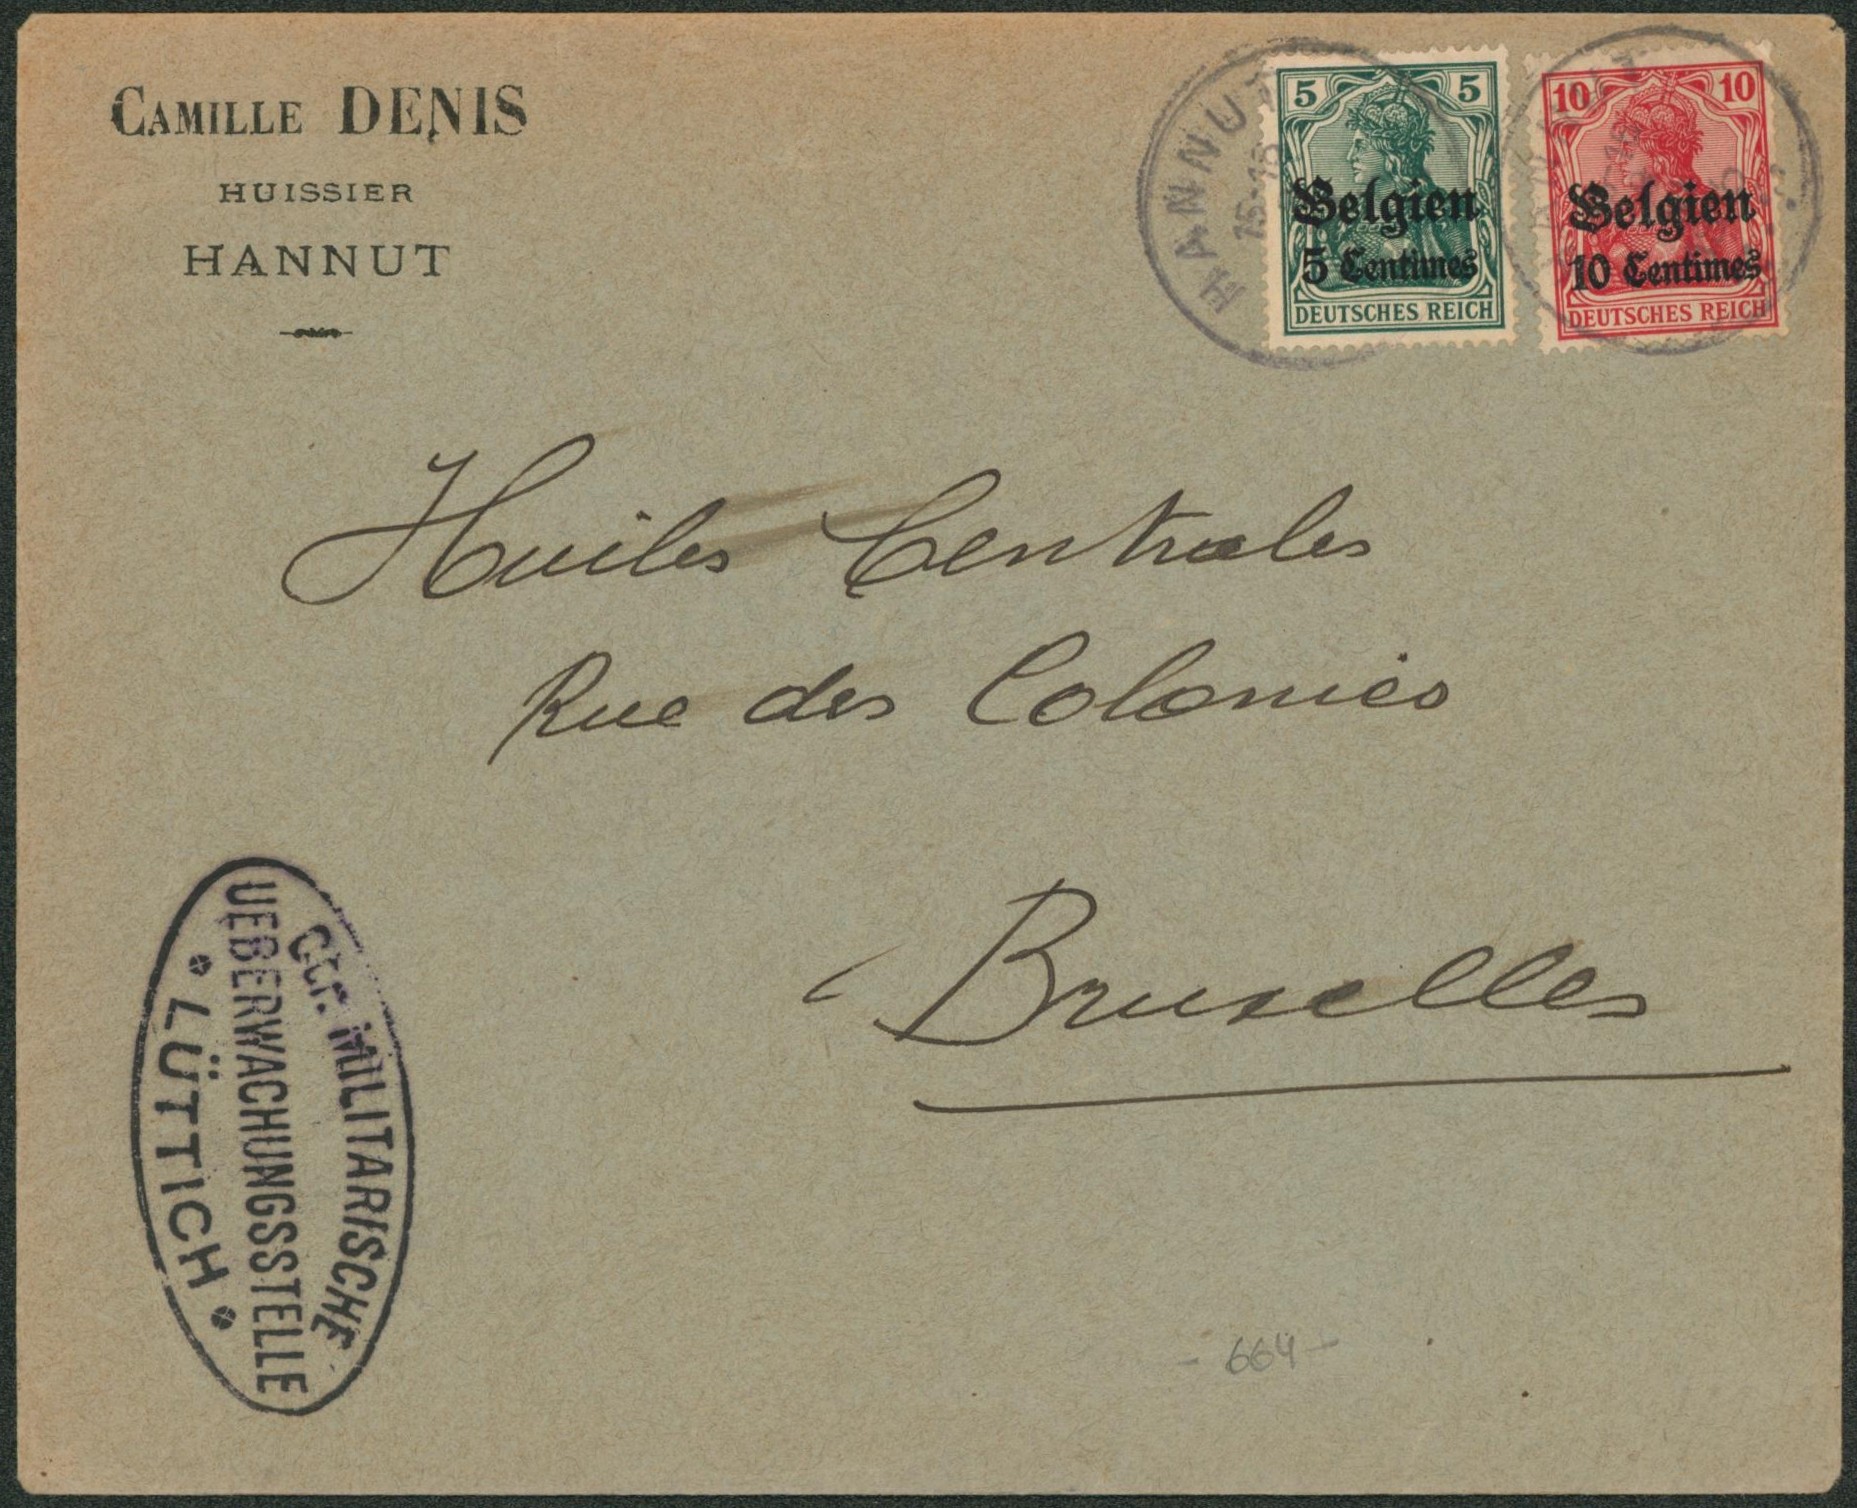 CAMILLE DENIS
HUISSIER
HANNUT
HANNUT
15-16
5 5
Belgien
5 Centimes
DEUTSCHES REICH
10 10
Belgien
10 Centimes
DEUTSCHES REICH
Huiles Centrales
Rue des Colonies
Bruxelles
MILITARISCHE
UEBERWACHUNGSSTELLE
LÜTTICH
- 664 -